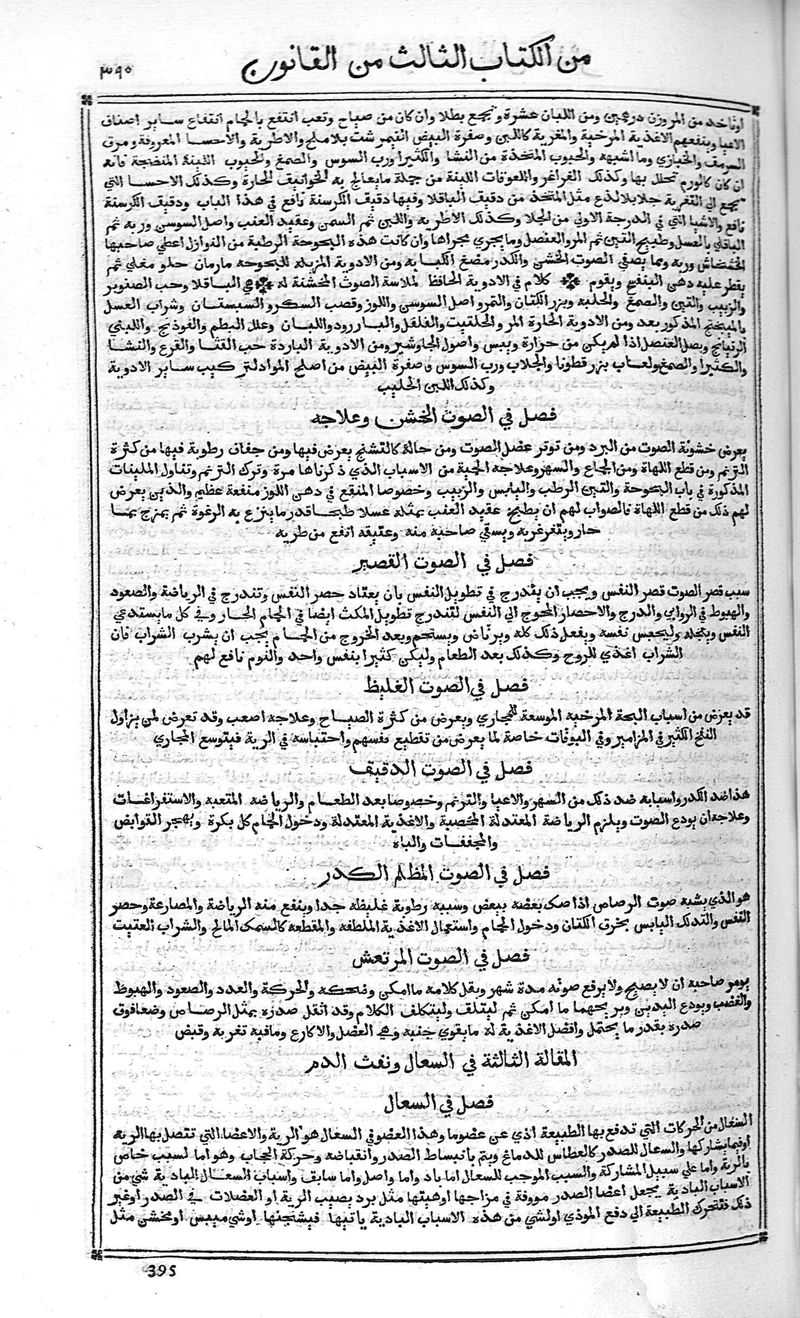 من الكتاب الثالث من القانون
٣٩٥
او تاخذ من المر وزن درهمين ومن اللبان عشرة وتجمع بطلا وان كان من صياح وتعب انتفع بالحمام انتفاع ساير اصناف
الاعيا وينفعهم الاغذية المرخية والمغرية كاللبن وصفرة البيض النيمرشت بلا ملح والاطرية والاحسا المعروفة ومرق
السرمق والخبازي وما اشبهه والحبوب المتخذة من النشا والكثيرا ورب السوس والصمغ والحبوب اللينة المنضجة فانه
ان كان كالورم تحلل بها وكذلك الغراغر واللعوقات اللينة من جملة ما يعالج به الخوانيق الحارة وكذلك الاحسا التي
تجمع الي التغرية جلا بلا لذع مثل المتخذ من دقيق الباقلا وفيها دقيق الكرسنة نافع في هذا الباب ودقيق الكرسنة
نافع والاشيا التي في الدرجة الاولي من الجلا وكذلك الاطرية واللبن ثم السمن وعقيد العنب واصل السوسن وربه ثم
الباقلي بالعسل وطبيخ التين ثم المر والعنصل وما يجري مجراها وان كانت هذه البحوحة الرطبة من النوازل اعطي صاحبها
الخشخاش وربه ومما يصفي الصوت الخشن والكدر مضغ الكبابه ومن الادوية المزيلة للبحوحه مارمان حلو مغلي ثم
يقطر عليه دهن البنفسج ويقوم ❊ كلام في الادوية الحافظ لملاسة الصوت المخشنة له ❊ هي الباقلا وحب الصنوبر
والزبيب والتين والصمغ والحلبه وبزر الكتان والتمر واصل السوسن واللوز وقصب السكر والسبستان وشراب العسل
بالميبختج المذكور بعد ومن الادوية الحارة المر والحلتيت والفلفل والبارزود واللبان وعلك البطم والفوذنج واللبني
الرتيانج وبصل العنصل اذا لم يكن من حرارة ويبس واصول الجاوشير ومن الادوية الباردة حب القثا والقرع والنشا
والكثيرا والصمغ ولعاب بزر قطونا والجلاب ورب السوس وصفرة البيض من اصلح المواد لتركيب ساير الادوية
وكذلك اللبن الحليب
فصل في الصوت الخشن وعلاجه
يعرض خشونة الصوت من البرد ومن توتر عضل الصوت ومن حالة كالتشنج يعرض فيها ومن جفاف رطوبة فيها من كثرة
الترنم ومن قطع اللهاة ومن الجماع والسهر وعلاجه الحمية من الاسباب الذي ذكرناها مرة وترك الترنم وتناول الملينات
المذكورة في باب البحوحة والتين الرطب واليابس والزبيب وخصوصا المنقع في دهن اللوز منفعة عظيم والذين يعرض
لهم ذلك من قطع اللهاة فالصواب لهم ان يطبخ عقيد العنب بمثله عسلا طبخا قدر ما ينزع به الرغوة ثم يمزج بما
حار ويتغرغر به ويسقي صاحبه منه وعتيقه انفع من طريه
فصل في الصوت القصير
سبب قصر الصوت قصر النفس ويجب ان يتدرج في تطويل النفس بان يعتاد حصر النفس وتتدرج في الرياضة والصعود
والهبوط في الروابي والدرج والاحصار المحوج الي النفس لتندرج تطويل المكث ايضا في الحمام الحار وفي كل ما يستدعي
النفس ويتحله وليحبس نفسه ويفعل ذلك كله ويرتاض ويستحم وبعد الخروج من الحمام يجب ان يشرب الشراب فان
الشراب اغذي للروح وكذلك بعد الطعام وليكن كثيرا بنفس واحد والنوم نافع لهم
فصل في الصوت الغليظ
قد يعرض من اسباب البحة المرخية الموسعة للمجاري ويعرض من كثرة الصياح وعلاجه اصعب وقد تعرض لمن يزاول
النفخ الكثير في المزامير وفي البوقات خاصة لما يعرض من تقطيع نفسهم واحتباسه في الرية فيتوسع المجاري
فصل في الصوت الدقيق
هذا ضد الكدر واسبابه ضد ذلك من السهر والاعيا والترنم وخصوصا بعد الطعام والرياضه المتعبه والاستفراغات
وعلاجه ان يودع الصوت ويلزم الرياضة المعتدلة المخصبة والاغذية المعتدلة ودخول الحمام كل بكرة ويهجر القوابض
والمجففات والباه
فصل في الصوت المظلم الكدر
هو الذي يشبه صوت الرصاص اذا صك بعضه ببعض وسببه رطوبة غليظه جدا وينفع منه الرياضة والمصارعة وحصر
النفس والتدلك اليابس بخرق الكتان ودخول الحمام واستعمال الاغذية الملطفه والمقطعه كالسمك المالح والشراب العتيق
فصل في الصوت المرتعش
يومر صاحبه ان لا يصيح ولا يرفع صوته مدة شهر ويقل كلامه ما امكن وضحكه والحركة والعدد والصعود والهبوط
والغضب ويودع اليدين ويريحهما ما امكن ثم ليتلف وليتكلف الكلام وقد اثقل صدره بمثل الرصاص وضعا فوق
صدره بقدر ما يحتمل وافضل الاغذية له ما يقوي جنبه وهي العضل والاكارع وما فيه تغرية وقبض
المقالة الثالثة في السعال ونفث الدم
فصل في السعال
السعال من الحركات التي تدفع بها الطبيعة اذي عن عضو ما وهذا العضو في السعال هو الرية والاعضا التي تتصل بها الرية
او فيما يشاركها والسعال للصدر كالعطاس للدماغ ويتم بانبساط الصدر وانقباضه وحركة الحجاب وهو اما لسبب خاص
بالرية واما علي سبيل المشاركة والسبب الموجب للسعال اما باد واما واصل واما سابق واسباب السعال البادية شي من
الاسباب البادية يجعل اعضا الصدر مووفة في مزاجها او هيئتها مثل برد يصيب الرية او العضلات في الصدر او غير
ذلك فتتحرك الطبيعة الي دفع الموذي او لشي من هذه الاسباب البادية ياتيها فيشنجها او شي ميبس او مخشن مثل
395